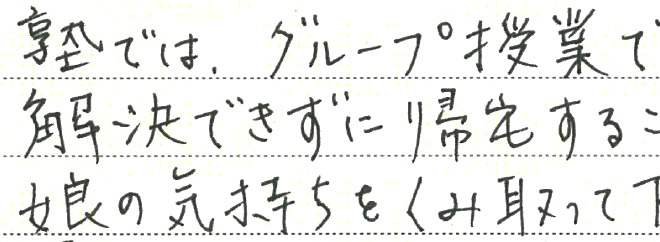 塾では、グループ授業で
解決できずに帰宅するこ
娘の気持ちをくみ取って下